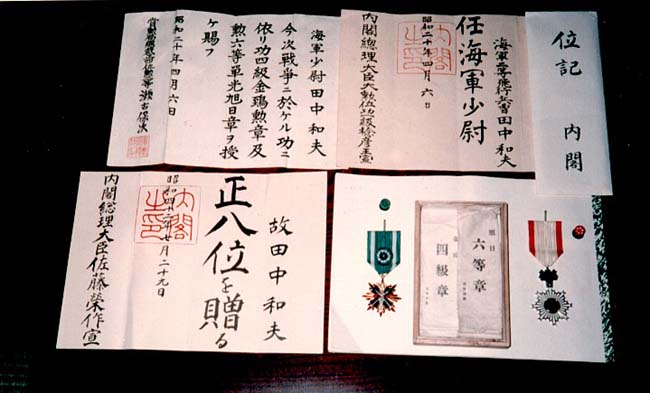 位記
内閣
海軍 田中和夫
任海軍少尉
昭和二十年四月六日
内閣總理大臣大勲位功一級稔彦王宣
内閣之印
海軍少尉田中和夫
今次戦争ニ於ケル功ニ
依リ功四級金鵄勲章及
勲六等単光旭日章ヲ授
ケ賜フ
昭和二十年四月六日
瀬古保次
故田中和夫
正八位を贈る
昭和四十二年七月二十九日
内閣之印
内閣總理大臣佐藤榮作宣
六等章
四級章